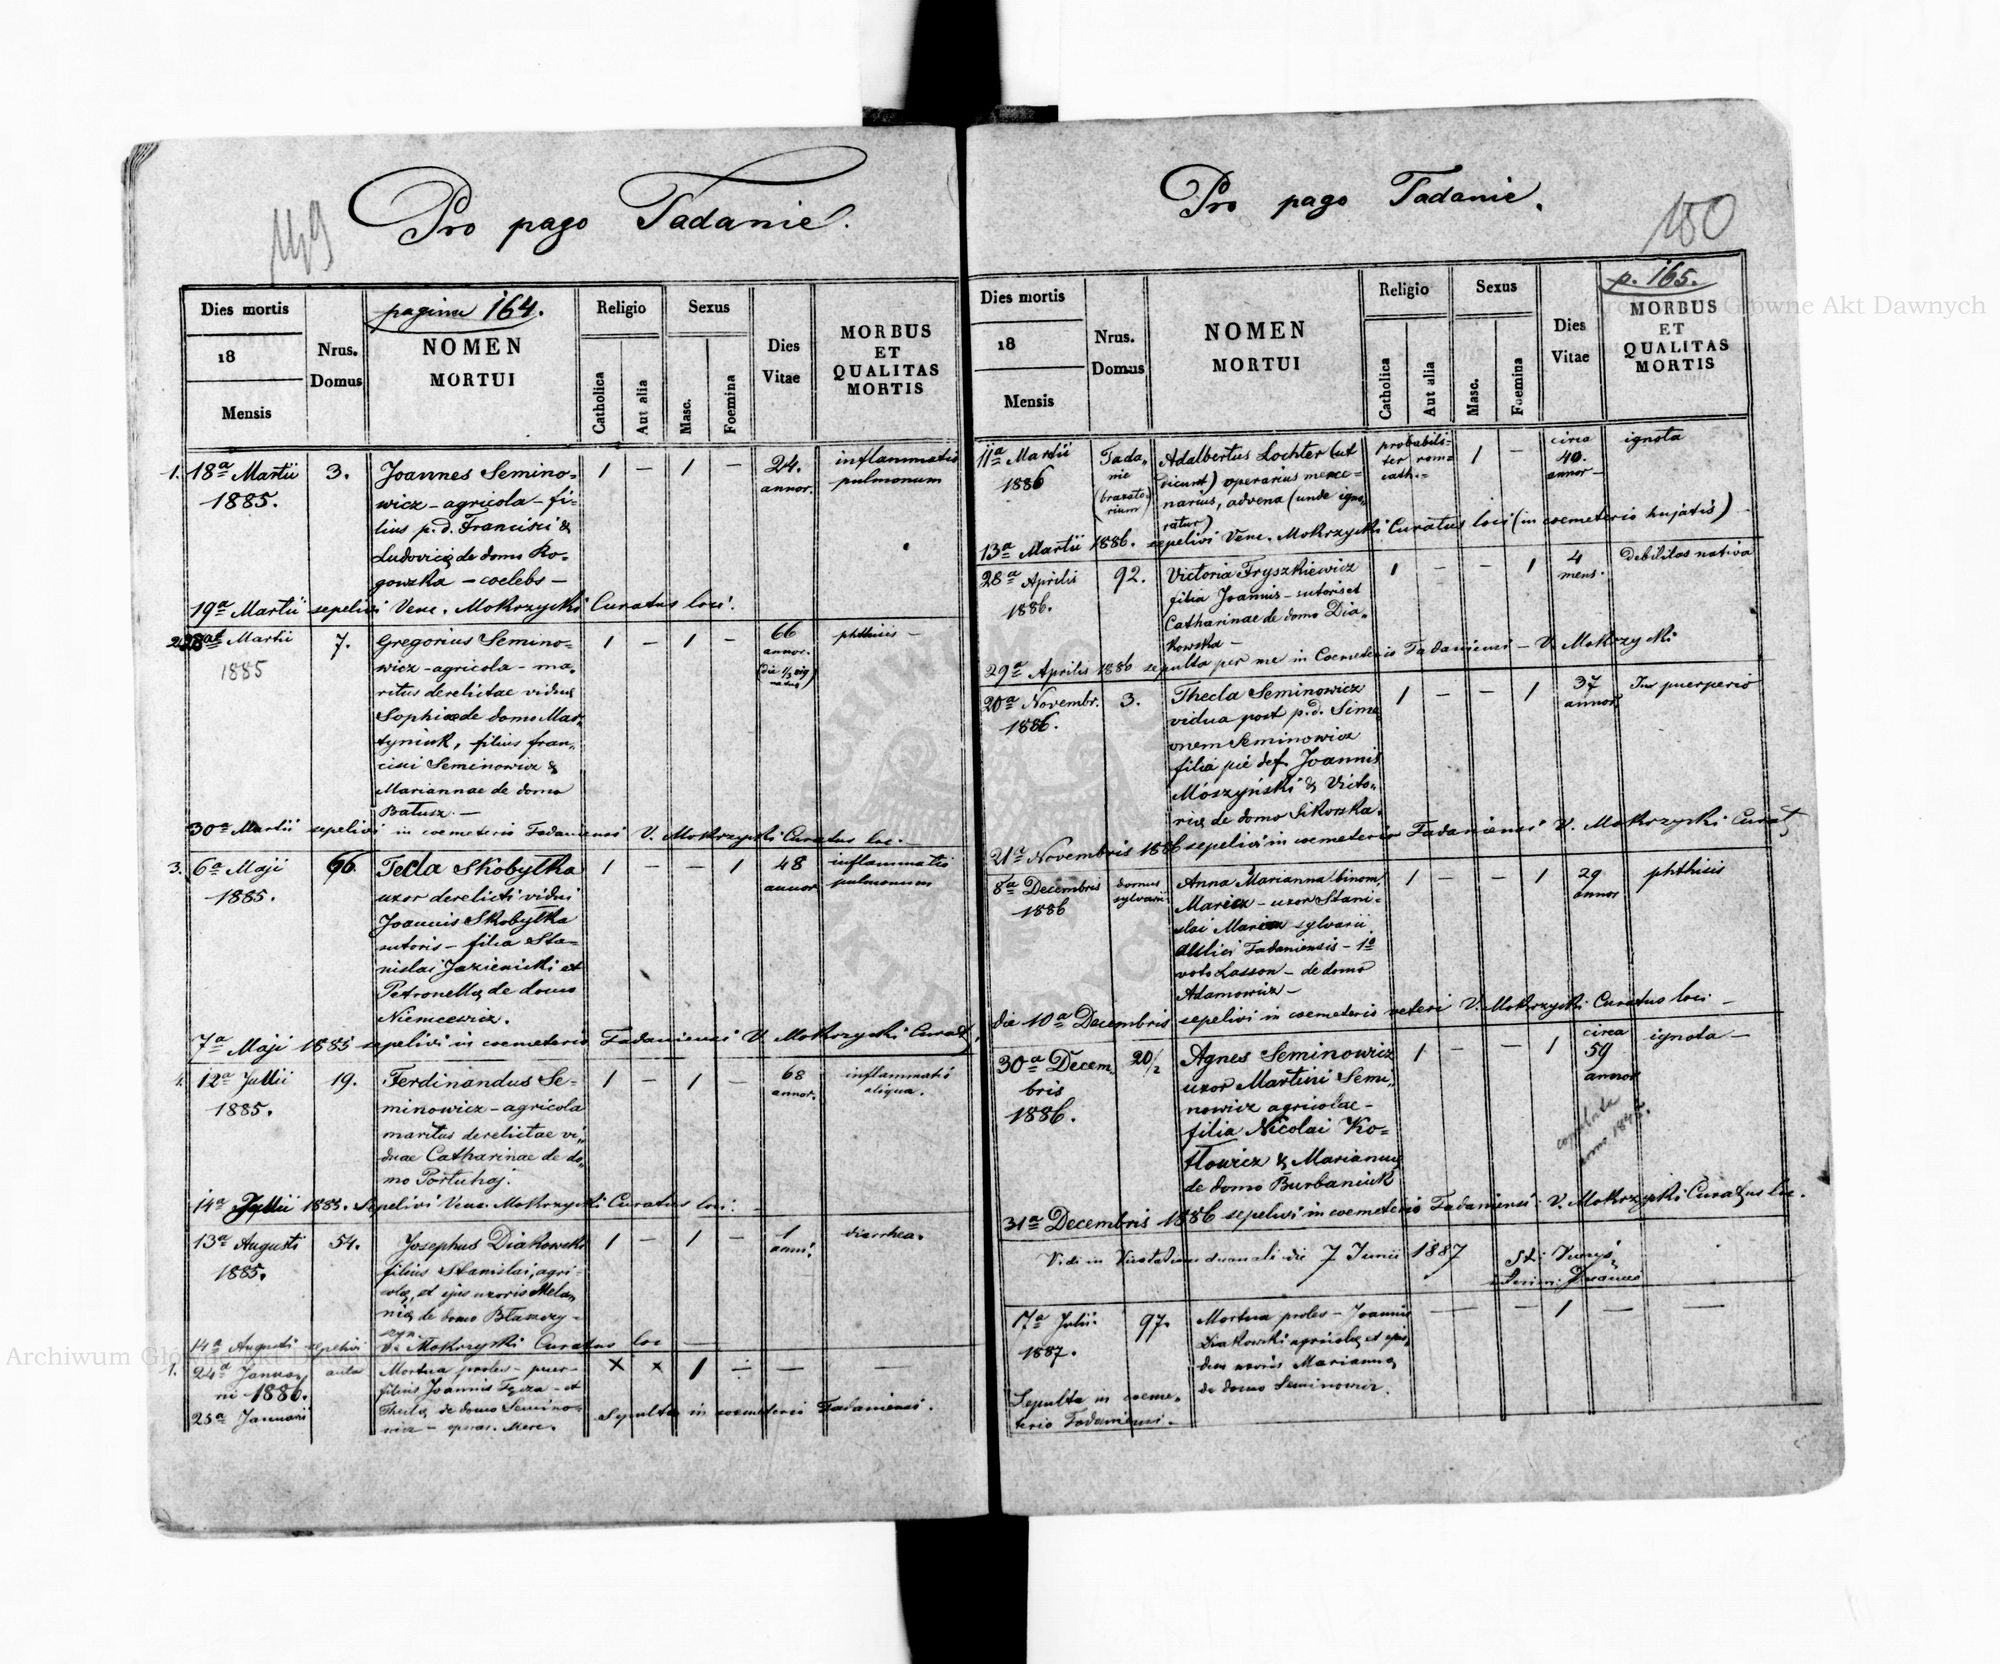 149
Pro pago Tadanie.
Dies mortis
18
Mensis
Nrus.
Domus
pagina 164.
NOMEN
MORTUI
Religio
Catholica
Aut alia
Sexus
Masc.
Foemina
Dies
Vitae
MORBUS
ET
QUALITAS
MORTIS
1. 18a Martii 3. Joannes Semino- 1 – 1 – 24. inflammatio
1885. wicz – agricola – fi- annor. pulmonum
lius p. d. Francisci &
Ludovicae de domo Ro-
gowska – coelebs –
19a Martii sepelivi Venc. Mokrzycki Curatus loci.
2. 28a Martii 7. Gregorius Semino- 1 – 1 – 66 phthisis –
1885 wicz – agricola – ma- annor.
ritus derelictae viduae
Sophiae de domo Mar-
tyniuk, filius Fran-
cisci Seminowicz &
Mariannae de domo
Batusz. –
30a Martii sepelivi in coemeterio Tadaniensi V. Mokrzycki Curatus loc. –
3. 6a Maji 66. Tecla Skobyłka 1 – – 1 48 inflammatio
1885. uxor derelicti vidui annor pulmonum
Joannis Skobyłka
sutoris – filia Sta-
nislai Jazienicki et
Petronellae de domo
Niemcewicz.
7a Maji 1885 sepelivi in coemeterio Tadaniensi V. Mokrzycki Curat.
4. 12a Julii 19. Ferdinandus Se- 1 – 1 – 68 inflammatio
1885. minowicz – agricola annor. aliqua.
maritus derelictae vi-
duae Catharinae de do-
mo Portuhaj.
14a Julii 1885. Sepelivi Venc. Mokrzycki Curatus loci.
13a Augusti 54. Josephus Diakowski 1 – 1 – 1 diarrhea.
1885. filius Stanislai, agri- anni.
colae, et ejus uxoris Mela-
niae de domo Błaszczy-
szyn.
14a Augusti sepelivi V. Mokrzycki Curatus loc
1. 24a Janua- Mortua proles – puer – × × 1 – – –
rii 1886. filius Joannis et
25a Januarii Theclae de domo Semino- Sepulta in coemeterio Tadaniensi.
wicz – operar. merc.
150
Pro pago Tadanie.
Dies mortis
18
Mensis
Nrus.
Domus
NOMEN
MORTUI
Religio
Catholica
Aut alia
Sexus
Masc.
Foemina
Dies
Vitae
p. 165.
MORBUS
ET
QUALITAS
MORTIS
11a Martii Tada- Adalbertus Lochter (ut probabili- 1 – circa ignota
1886 nie dicunt) operarius merce- ter rom= 40.
(braxato- narius, advena (unde igno- cath.= annor –
rium) ratur)
13a Martii 1886. sepelivi Venc. Mokrzycki Curatus loci (in coemeterio hujatis)
28a Aprilis 92. Victoria Fryszkiewicz 1 – – 1 4 Debilitas nativa
1886. filia Joannis – sutoris et mens.
Catharinae de domo Dia-
kowska –
29a Aprilis 1886 sepulta per me in Coemeterio Tadaniensi – V. Mokrzycki
20a Novembr. 3. Thecla Seminowicz 1 – – 1 37 In puerperio
1886. vidua post p. d. Sime- annor.
onem Seminowicz
filia pie def. Joannis
Moszyński & Victo-
riae de domo Sikorska.
21a Novembris 1886 sepelivi in coemeterio Tadaniensi V. Mokrzycki Curat.
8a Decembris domus Anna Marianna binom. 1 – – 1 29 phthisis
1886 sylvani uxor Stani- annor
slai sylvani
aulici Tadaniensis – 1o
voto Lasson – de domo
Adamowicz –
die 10a Decembris sepelivi in coemeterio veteri V. Mokrzycki Curatus loci –
30a Decem- 20/2 Agnes Seminowicz 1 – – 1 circa ignota –
bris uxor Martini Semi- 59
1886. nowicz agricolae – annor
filia Nicolai Ko- copulata
tłowicz & Mariannae anno
de domo Burbaniuk
31a Decembris 1886 sepelivi in coemeterio Tadaniensi V. Mokrzycki Curatus loc.
Vidi in Visitatione decanali die 7 Junii 1887
17a Julii 97. Mortua proles – Joannis – – – 1 – –
1887. Diakowski agricolae et ejus-
dem uxoris Mariannae
de domo Seminowicz.
Sepulta in coeme-
terio Tadaniensi –
Archiwum Główne Akt Dawnych
Archiwum Główne Akt Dawnych